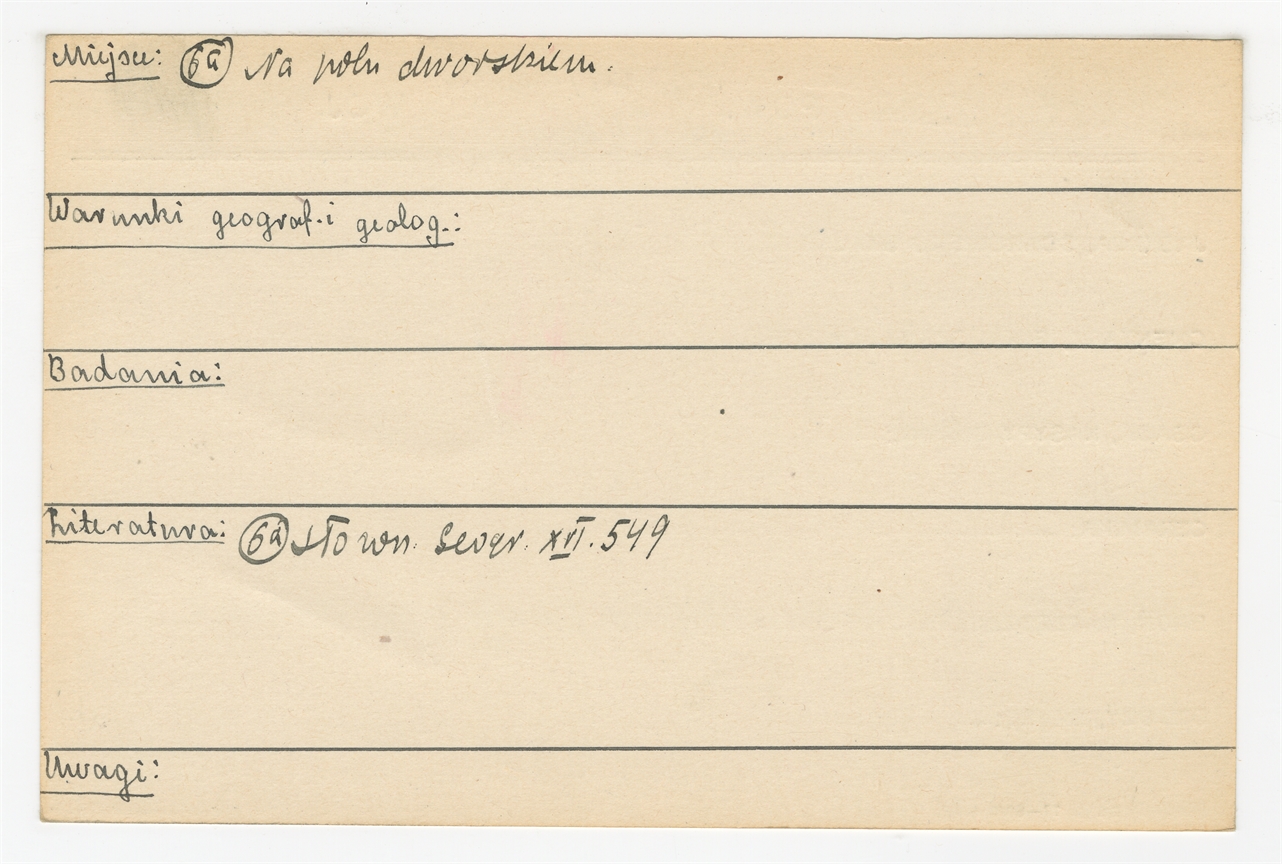 Miejsce: 6a Na polu dworskiem.
Warunki geograf. i geolog.:
Badania:
Literatura: 6a Słown. Geogr. XVI. 549
Uwagi: